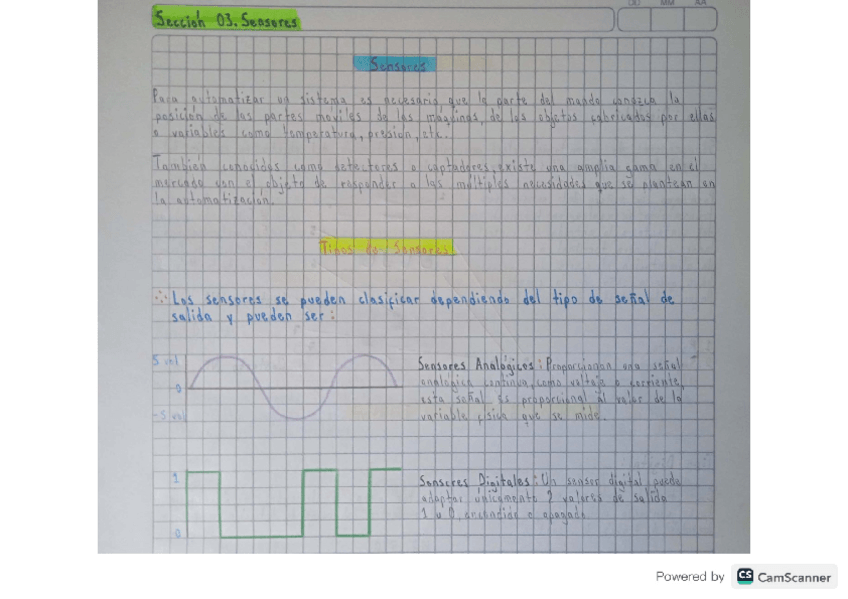 DD MM AA
Sección 03. Sensores
Sensores
Para automatizar un sistema es necesario que la parte del mando conozca la
posición de las partes moviles de las máquinas, de los objetos fabricados por ellas
o variables como temperatura, presion, etc.
También conocidos como detectores o captadores, existe una amplia gama en el
mercado con el objeto de responder a las múltiples necesidades que se plantean en
la automatización.
Tipos de Sensores
Los sensores se pueden clasificar dependiendo del tipo de señal de
salida y pueden ser:
5 vol
0
-5 vol
Sensores Analógicos: Proporcionan una señal
analógica continua, como voltaje o corriente,
esta señal es proporcional al valor de la
variable fisica que se mide.
1
0
Sensores Digitales: Un sensor digital puede
adoptar únicamente 2 valores de salida
1 u 0, encendido o apagado
Powered by CS CamScanner